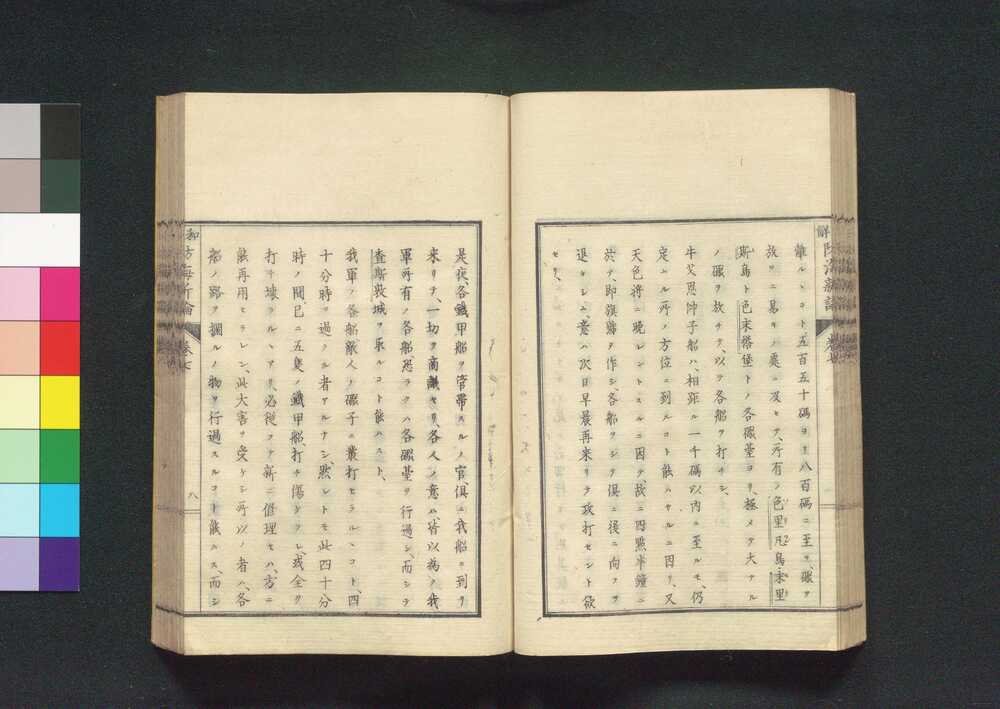 離ルヽコト五百五十碼ヨリ八百碼ニ至ル、礟ヲ
放ツニ易キノ處ニ及ヒテ、所有ノ色里凡烏末里
斯烏ト色末撘堡トノ各礟臺ヨリ、極メテ大ナル
ノ礟ヲ放チテ、以テ各船ヲ打チシ、
牛艾恩沖子船ハ、相距ル一千碼以内ニ至ルモ、仍
定ムル所ノ方位ニ到ルコト能ハサルニ因リ、又
天色将ニ晩レントスルニ因テ、故ニ四點半鐘ニ
於テ即旗號ヲ作シ、各船ヲシテ俱ニ後ニ向ツテ
退カシム、意ハ次日早晨再来リテ攻打セント欲
セリ、
是夜、各鐵甲船ヲ管帶スルノ官、俱ニ我船ニ到リ
来リテ、一切ヲ商議セリ、各人ノ意ハ、皆以為ク我
軍所有ノ各船恐ラクハ各礟臺ヲ行過シ、而シテ
查斯敦城ヲ取ルコト能ハスト、
我軍ノ各船敵人ノ礟子ニ叢打セラルヽコト、四
十分時ヲ過クル者アルナシ、然レトモ此四十分
時ノ間已ニ五隻ノ鐵甲船、打チ傷ケラレ、或全ク
打チ壊ラルヽアリ、必從フテ新ニ修理セハ、方ニ
能再用セラレン、此大害ヲ受ケシ所以ノ者ハ、各
船ノ路ヲ攔ルノ物ヲ行過スルコト能ハス、而シ
卷七
八